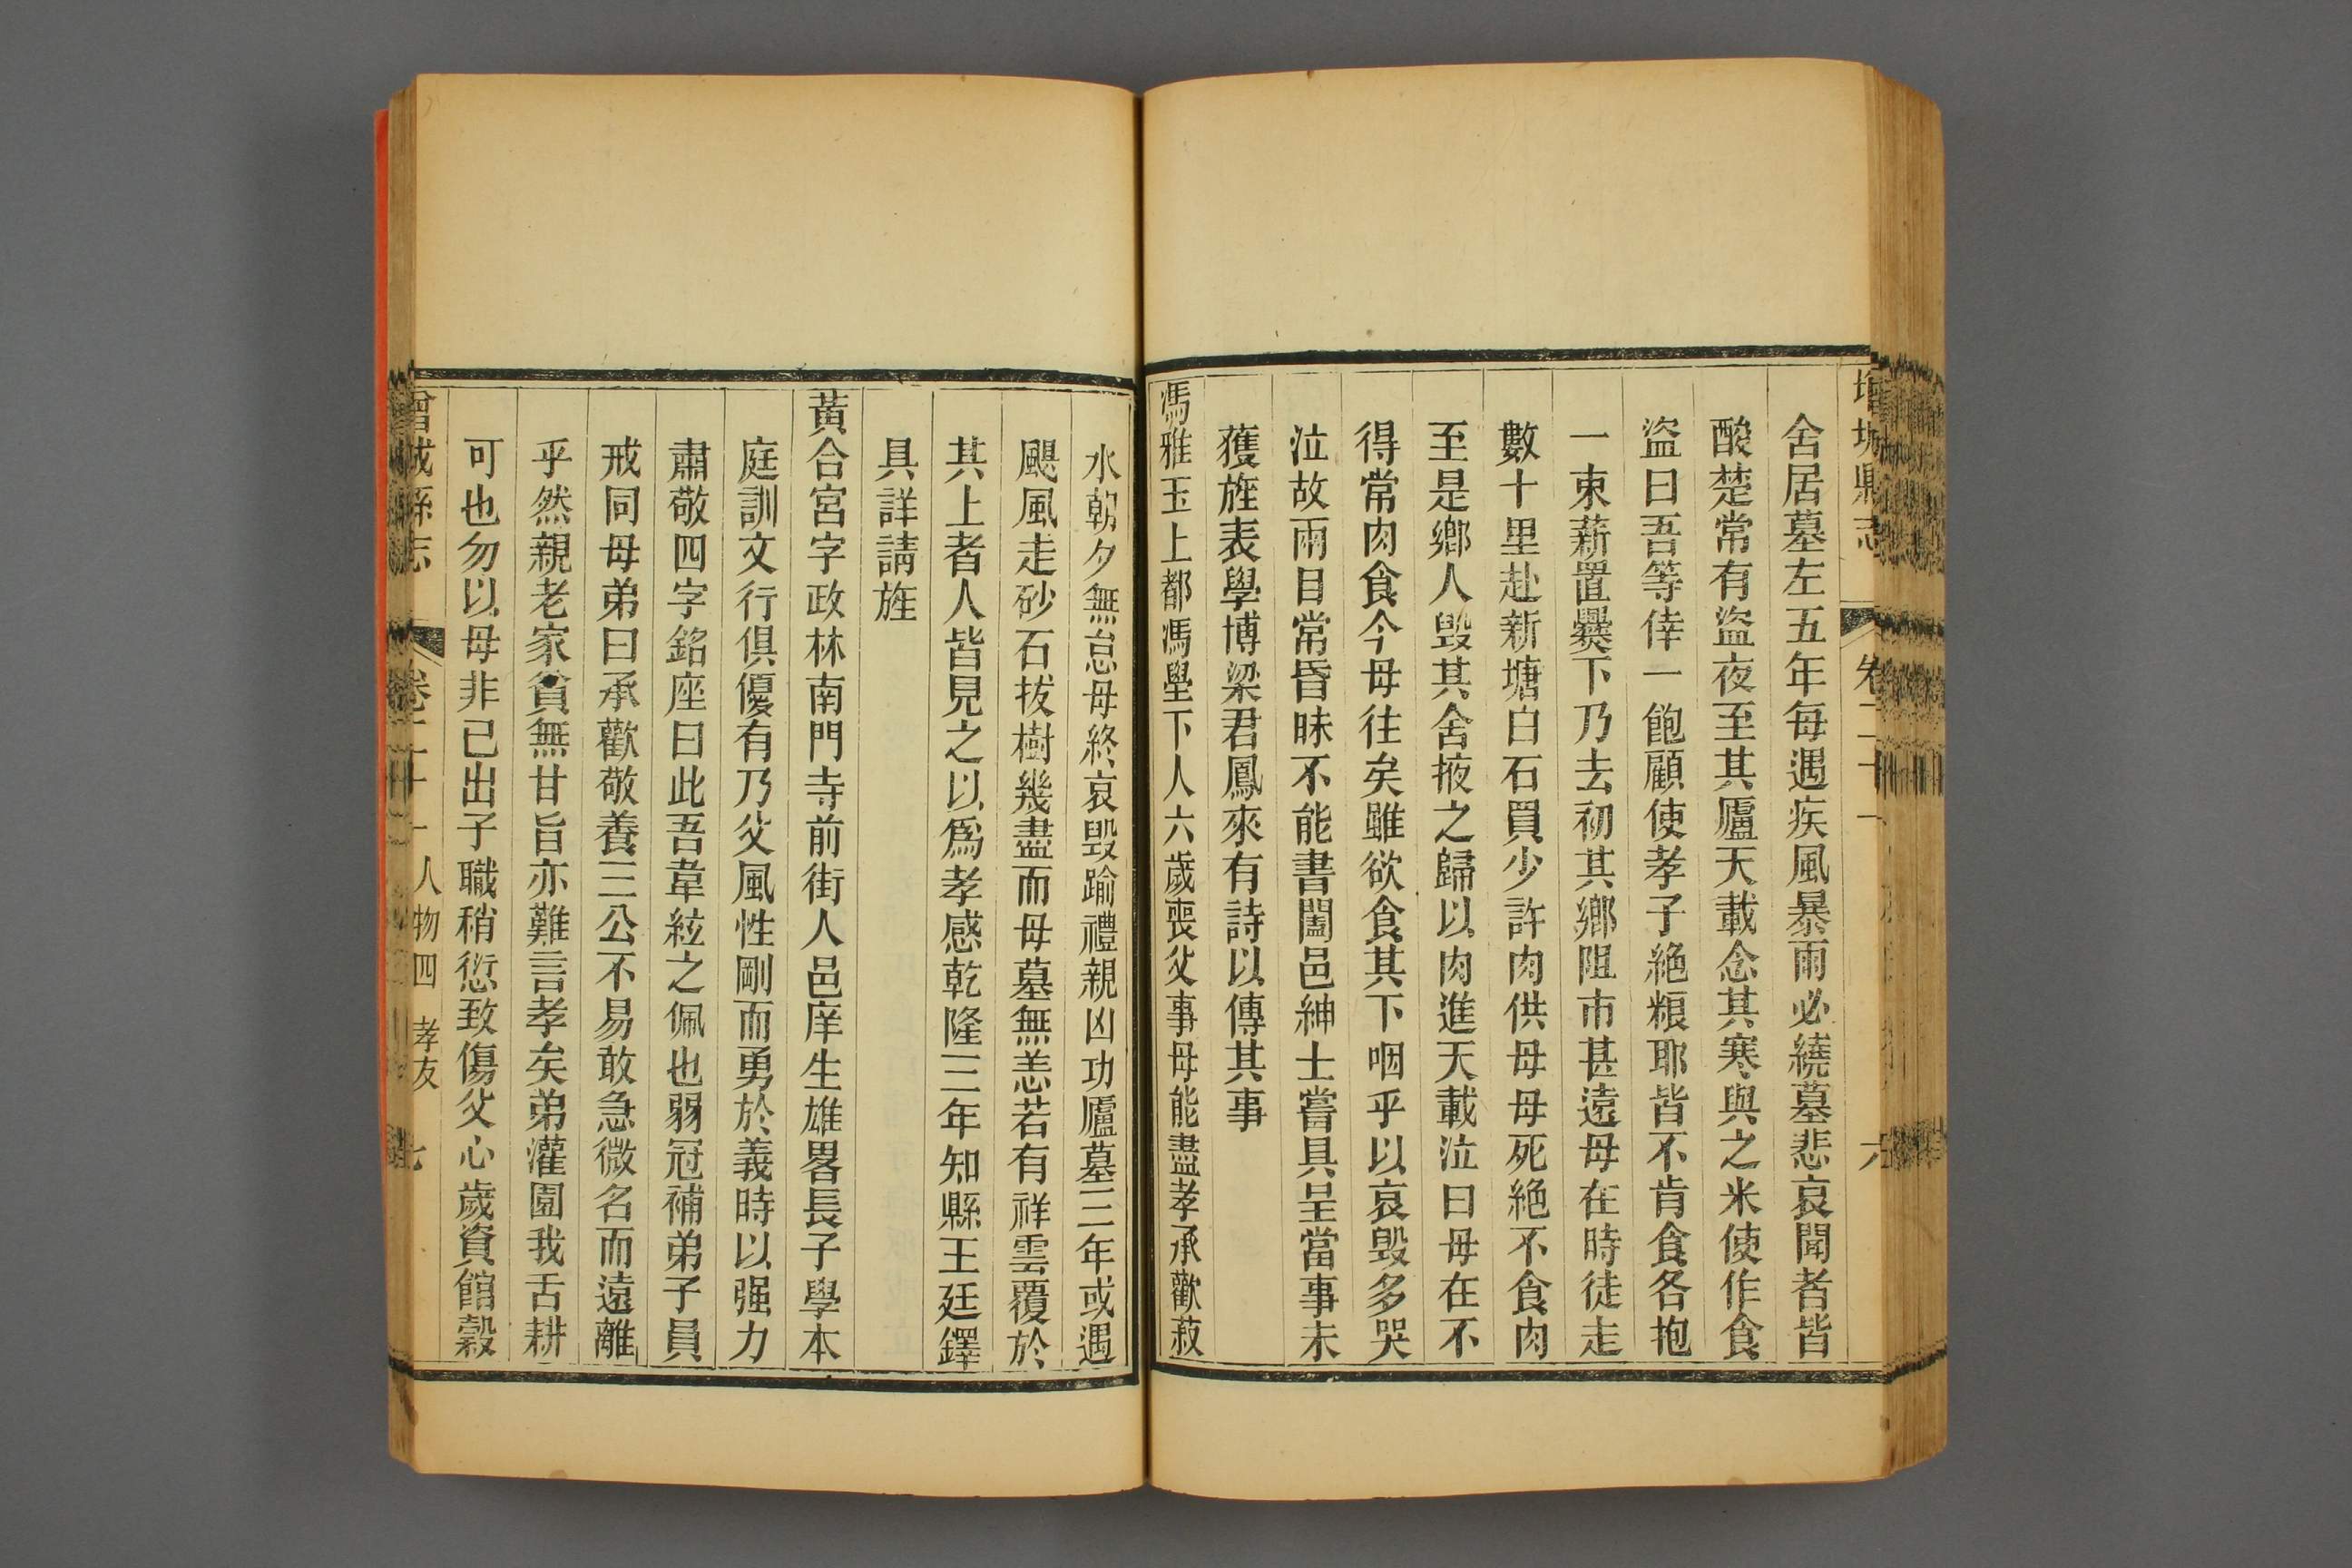 增城縣志 卷二十一 六
舍居墓左五年每遇疾風暴雨必繞墓悲哀聞者皆
酸楚常有盜夜至其廬天載念其寒與之米使作食
盜曰吾等倖一飽顧使孝子絶粮耶皆不肯食各抱
一束薪置爨下乃去初其鄉阻市甚遠母在時徒走
數十里赴新塘白石買少許肉供母母死絶不食肉
至是鄉人毁其舍掖之歸以肉進天載泣曰母在不
得常肉食今母往矣雖欲食其下咽乎以哀毁多哭
泣故兩目常昏昧不能書闔邑紳士嘗具呈當事未
獲旌表學博梁君鳳來有詩以傳其事
馮雅玉上都馮壆下人六歲喪父事母能盡孝承歡菽
水朝夕無怠母終哀毁踰禮親凶功廬墓三年或遇
颶風走砂石拔樹幾盡而母墓無恙若有祥雲覆於
其上者人皆見之以爲孝感乾隆三年知縣王廷鐸
具詳請旌
黃合宮字政林南門寺前街人邑庠生雄畧長子學本
庭訓文行俱優有乃父風性剛而勇於義時以强力
肅敬四字銘座曰此吾韋絃之佩也弱冠補弟子員
戒同母弟曰承歡敬養三公不易敢急微名而遠離
乎然親老家貧無甘旨亦難言孝矣弟灌園我舌耕
可也勿以母非已出子職稍愆致傷父心歲資館穀
增城縣志 卷二十一 人物四 孝友 七